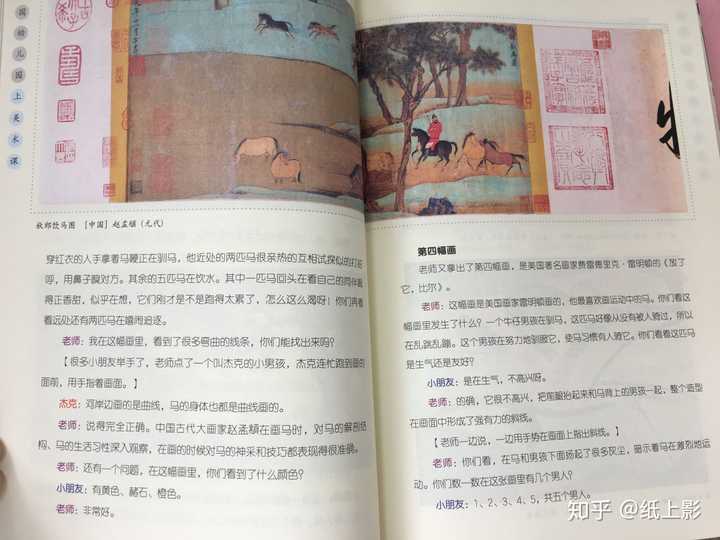 国幼儿园上美术课
秋郊饮马图 [中国] 赵孟頫（元代）
穿红衣的人手拿着马鞭正在驯马，他近处的两匹马很亲热的互相试探似的打招
呼，用鼻子嗅对方。其余的五匹马在饮水。其中一匹马回头在看自己的同伴喝
得正香甜，似乎在想，它们刚才是不是跑得太累了，怎么这么渴呀！你们再看
看远处还有两匹马在嬉闹追逐。
老师：我在这幅画里，看到了很多弯曲的线条，你们能找出来吗？
【很多小朋友举手了，老师点了一个叫杰克的小男孩，杰克连忙跑到画的
面前，用手指着画面。】
杰克：河岸边画的是曲线，马的身体也都是曲线画的。
老师：说得完全正确。中国古代大画家赵孟頫在画马时，对马的解剖结
构、马的生活习性深入观察，在画的时候对马的神采和技巧都表现得很准确。
老师：还有一个问题，在这幅画里，你们看到了什么颜色？
小朋友：有黄色、赭石、橙色。
老师：非常好。
第四幅画
老师又拿出了第四幅画，是美国著名画家费雷德里克·雷明顿的《放了
它，比尔》。
老师：这幅画是美国画家雷明顿画的，他最喜欢画运动中的马。你们看这
幅画里发生了什么？一个牛仔男孩在驯马，这匹马好像从没有被人骑过，所以
在乱跳乱蹦。这个男孩在努力地驯服它，使马习惯有人骑它。你们看看这匹马
是生气还是友好？
小朋友：是在生气，不高兴呀。
老师：的确，它很不高兴，把尾巴抬起来和马背上的男孩一起，整个造型
在画面中形成了强有力的斜线。
【老师一边说，一边用手势在画面上指出斜线。】
老师：你们看，在马和男孩下面扬起了很多灰尘，暗示着马在激烈地运
动。你们数一数在这张画里有几个男人？
小朋友：1、2、3、4、5，共五个男人。
知乎 @纸上影